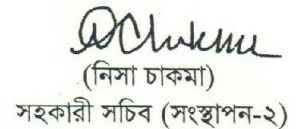 (নিসা চাকমা)
সহকারী সচিব (সংস্থাপন-২)